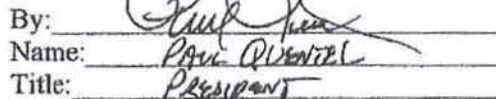 By:
Name: PAUL QUENTEL
Title: PRESIDENT